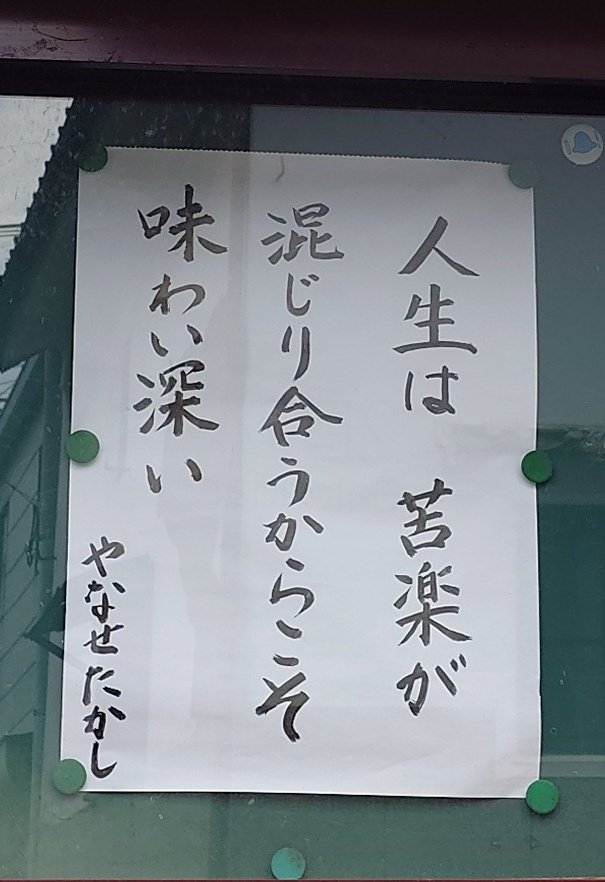 人生は 苦楽が
混じり合うからこそ
味わい深い
やなせたかし